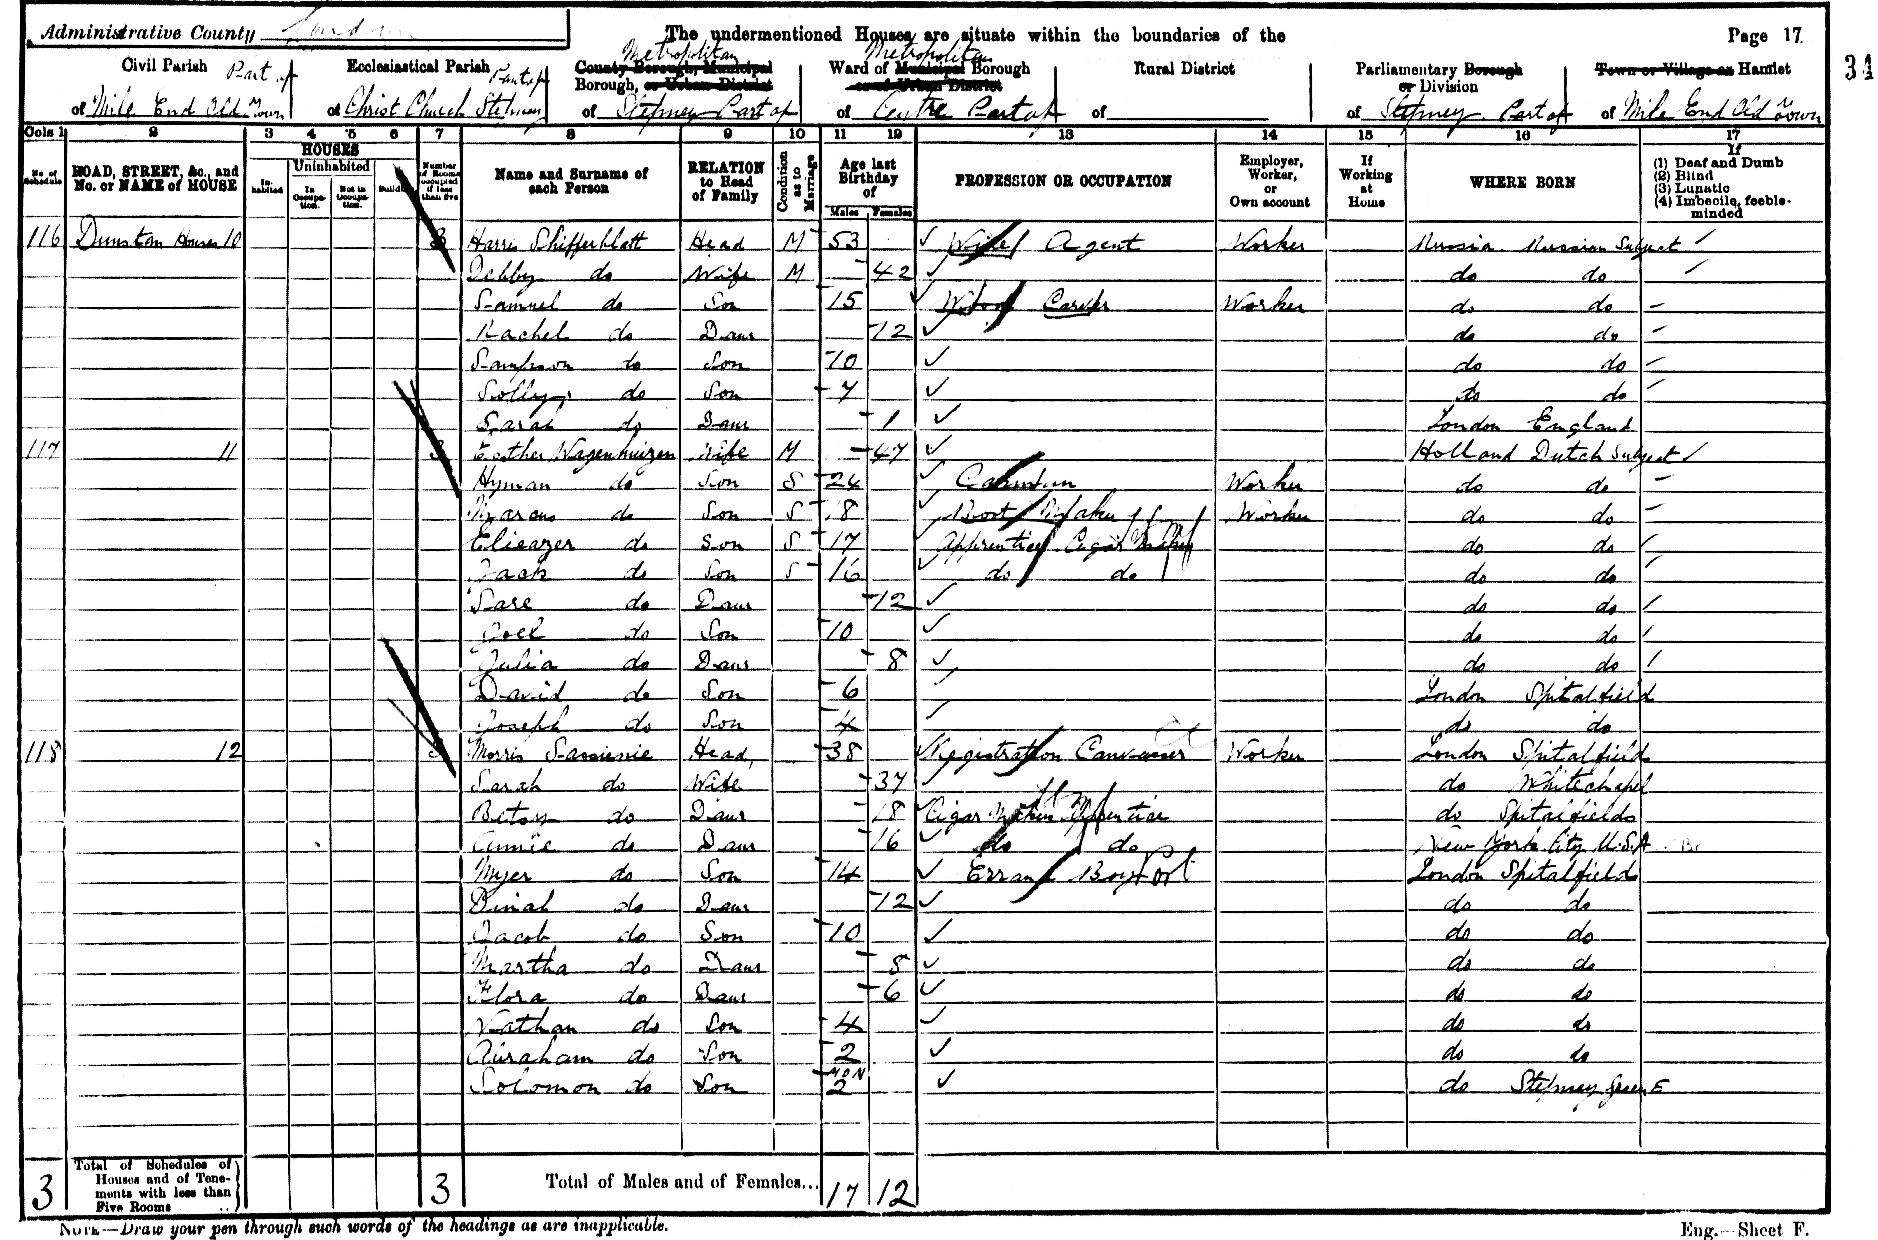 Administrative County London
The undermentioned Houses are situate within the boundaries of the
Page 17
34
Civil Parish Part of
of Mile End Old Town
Ecclesiastical Parish Part of
of Christ Church Stepney
Metropolitan
County Borough, Municipal
Borough, or Urban District
of Stepney Part of
Metropolitan
Ward of Municipal Borough
or of Urban District
of Centre Part of
Rural District
of
Parliamentary Borough
or Division
of Stepney Part of
Town or Village or Hamlet
of Mile End Old Town
Cols 1 2 3 4 5 6 7 8 9 10 11 12 13 14 15 16 17
No. of Schedule
ROAD, STREET, &c., and No. or NAME of HOUSE
HOUSES
Inhabited
Uninhabited
In Occupation.
Not in Occupation.
Building
Number of Rooms occupied if less than five
Name and Surname of each Person
RELATION to Head of Family
Condition as to Marriage
Age last Birthday of
Males Females
PROFESSION OR OCCUPATION
Employer, Worker, or Own account
If Working at Home
WHERE BORN
If
(1) Deaf and Dumb
(2) Blind
(3) Lunatic
(4) Imbecile, feeble-minded
116 Dunstan Houses 10 3 Harris Schifferblatt Head M 53 Agent Worker Russia Russian Subject
Debby do Wife M 42 do do
Samuel do Son 15 Wood Carver Worker do do
Rachel do Daur 12 do do
Sampson do Son 10 do do
Solly do Son 7 do do
Sarah do Daur 1 London England
117 11 3 Esther Wagenhuizen Wife M 47 Holland Dutch Subject
Hyman do Son S 24 Worker do do
Marcus do Son S 18 Boot Maker Worker do do
Elieazer do Son S 17 Apprentice Cigar Maker do do
Jack do Son S 16 do do do do
Sare do Daur 12 do do
Joel do Son 10 do do
Julia do Daur 8 do do
David do Son 6 London Spitalfield
Joseph do Son 4 do do
118 12 3 Morris Head 38 Registration Canvasser Worker London Spitalfield
Sarah do Wife 37 do Whitechapel
Betsy do Daur 18 Cigar Maker Apprentice do Spitalfields
Annie do Daur 16 do do New York City U.S.A
Myer do Son 14 Errand Boy London Spitalfields
Dinah do Daur 12 do do
Jacob do Son 10 do do
Martha do Daur 8 do do
Flora do Daur 6 do do
Nathan do Son 4 do do
Abraham do Son 2 do do
Solomon do Son 2 MON do Stepney Green E
3 Total of Schedules of Houses and of Tenements with less than Five Rooms 3 Total of Males and of Females... 17 12
NOTE—Draw your pen through such words of the headings as are inapplicable.
Eng.—Sheet F.